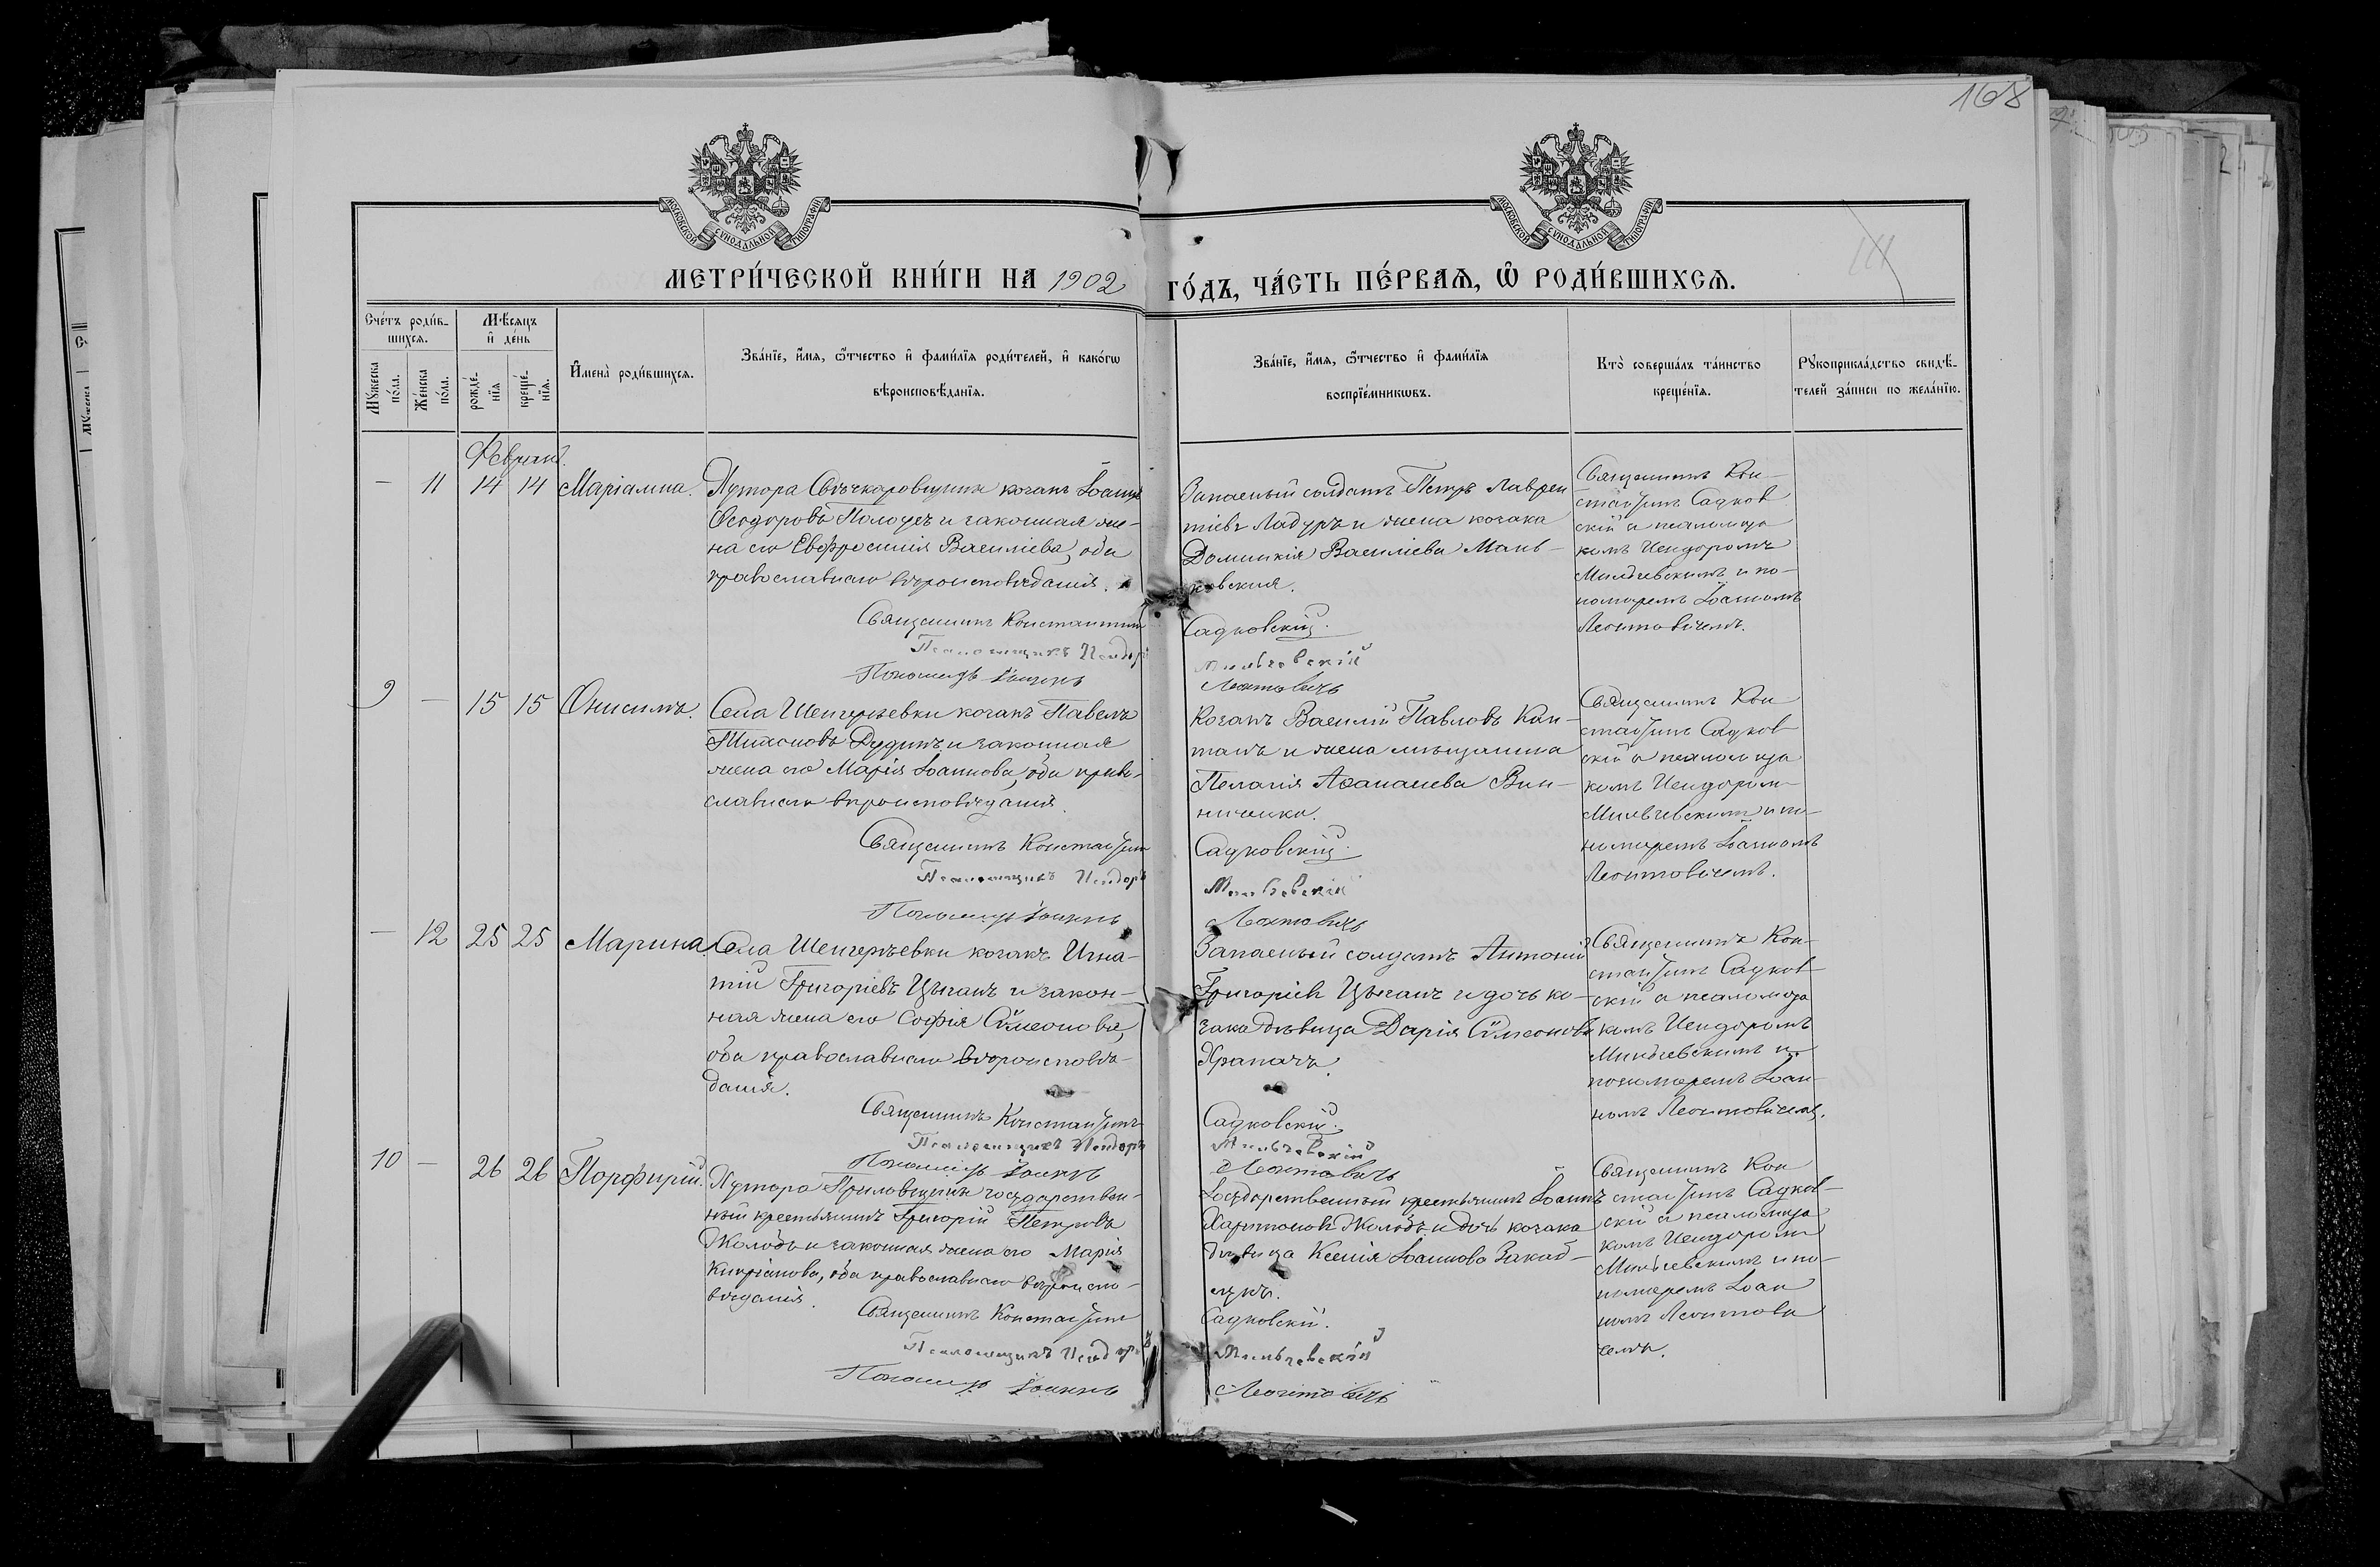 168
МОСКОВСКОЙ СУНОДАЛЬНОЙ ТИПОГРАФІИ
МОСКОВСКОЙ СУНОДАЛЬНОЙ ТИПОГРАФІИ
МЕТРИ́ЧЕСКОЙ КНИ́ГИ НА 1902 ГО́ДЪ, ЧА́СТЬ ПЕ́РВАѦ, Ѡ РОДИ́ВШИХСѦ.
Сче́тъ роди́в-
шихсѧ.
Мѣ́сѧцъ
и҆ де́нь
Мꙋ́жеска
по́ла.
Же́нска
по́ла.
рожде́-
нїѧ
креще́-
нїѧ.
И҆мена̀ роди́вшихсѧ.
Зва́нїе, и҆́мѧ, ѻ҆́тчество и҆ фами́лїѧ роди́телей, и҆ како́гѡ
вѣроисповѣ́данїѧ.
Зва́нїе, и҆́мѧ, ѻ҆́тчество и҆ фами́лїѧ
воспрїе́мникѡвъ.
Кто̀ соверша́лъ та́инство
креще́нїѧ.
Рꙋкоприкла́дство свидѣ́-
телей за́писи по жела́нїю.
Февраль.
— 11 14 14 Маріамна.
Хутора Свѣчкаровщины козакъ Іоаннъ
Ѳеодоровъ Полодъ и законная же-
на его Евфросинія Василіева, оба
православнаго вѣроисповѣданія.
Священникъ Константинъ
Псаломщикъ Исидоръ
Пономарь Іоаннъ
Запасный солдатъ Петръ Лаврен
тіевъ Ладуръ и жена козака
Домникія Василіева Мань-
ковская.
Садковскій.
Мильчевскій
Леонтовичъ
Священникъ Кон-
стантинъ Садков
скій съ псаломщи
комъ Исидоромъ
Мильчевскимъ и по-
номаремъ Іоанномъ
Леонтовичемъ.
9 — 15 15 Онисимъ.
Села Шенгеріевки козакъ Павелъ
Тихоновъ Дудинъ и законная
жена его Марія Іоаннова, оба право-
славнаго вѣроисповѣданія.
Священникъ Константинъ
Псаломщикъ Исидоръ
Пономарь Іоаннъ
Козакъ Василій Павловъ Кап-
танъ и жена мѣщанина
Пелагія Аѳанасіева Вин-
ниченко.
Садковскій.
Мильчевскій
Леонтовичъ
Священникъ Кон
стантинъ Садков
скій съ псаломщи
комъ Исидоромъ
Мильчевскимъ и по-
номаремъ Іоанномъ
Леонтовичемъ.
— 12 25 25 Марина.
Села Шенгеріевки козакъ Игна-
тій Григоріевъ Цыганъ и закон-
ная жена его Софія Сѵмеонова,
оба православнаго вѣроисповѣ-
данія.
Священникъ Константинъ
Псаломщикъ Исидоръ
Пономарь Іоаннъ
Запасный солдатъ Антоній
Григоріевъ Цыганъ и дочь ко-
зака дѣвица Дарія Сѵмеонова
Храпачъ.
Садковскій.
Мильчевскій
Леонтовичъ
Священникъ Кон-
стантинъ Садков-
скій съ псаломщи
комъ Исидоромъ
Мильчевскимъ и
пономаремъ Іоан-
номъ Леонтовичемъ.
10 — 26 26 Порфирій.
Хутора Приловщины государствен-
ный крестьянинъ Григорій Петровъ
Жолобъ и законная жена его Марія
Кипріанова, оба православнаго вѣроиспо-
вѣданія.
Священникъ Константинъ
Псаломщикъ Исидоръ
Пономарь Іоаннъ
Государственный крестьянинъ Іоаннъ
Харитоновъ Жолобъ и дочь козака
дѣвица Ксенія Іоаннова
Садковскій.
Мильчевскій
Леонтовичъ
Священникъ Кон
стантинъ Садков-
скій съ псаломщи
комъ Исидоромъ
Мильчевскимъ и по-
номаремъ Іоан
номъ Леонтови
чемъ.